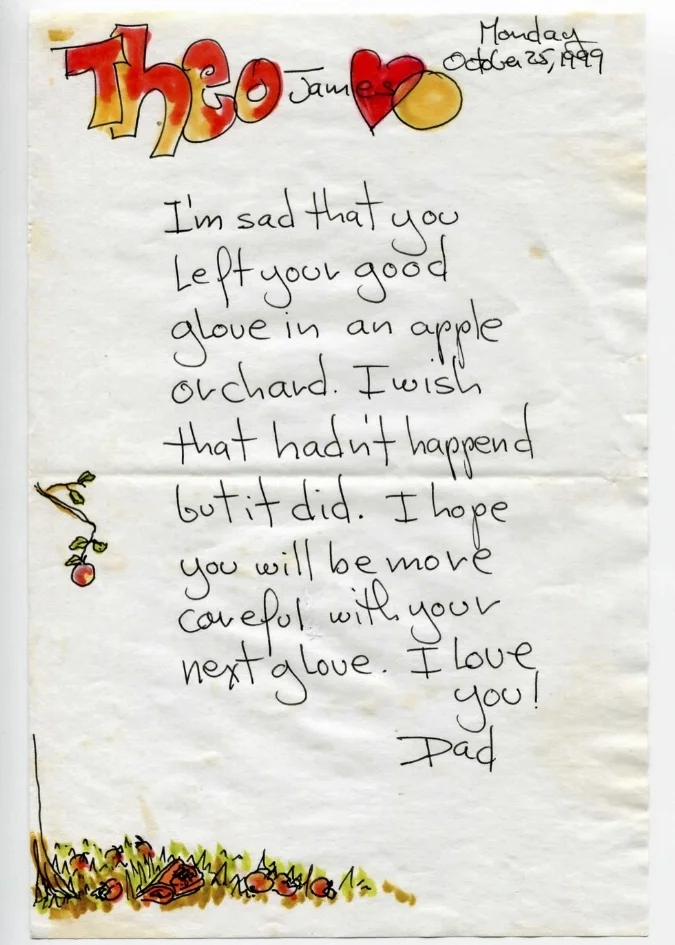 Monday
October 25, 1999
Theo James
I'm sad that you
Left your good
glove in an apple
orchard. I wish
that hadn't happend
but it did. I hope
you will be more
careful with your
next glove. I Love
you!
Dad